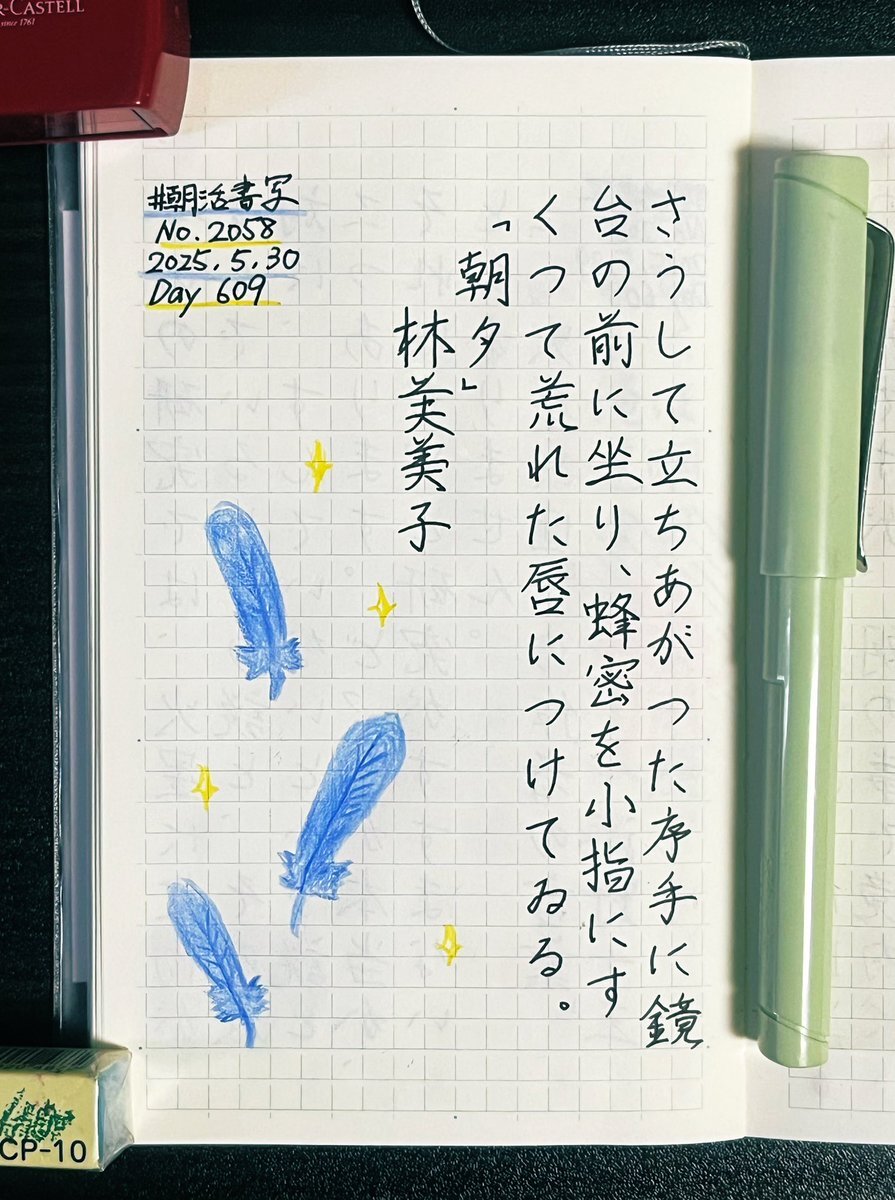 R-CASTELL
since 1761
#朝活書写
No. 2058
2025.5.30
Day 609
さうして立ちあがつた序手に鏡
台の前に坐り、蜂蜜を小指にす
くつて荒れた唇につけてゐる。
「朝夕」
林芙美子
CP-10